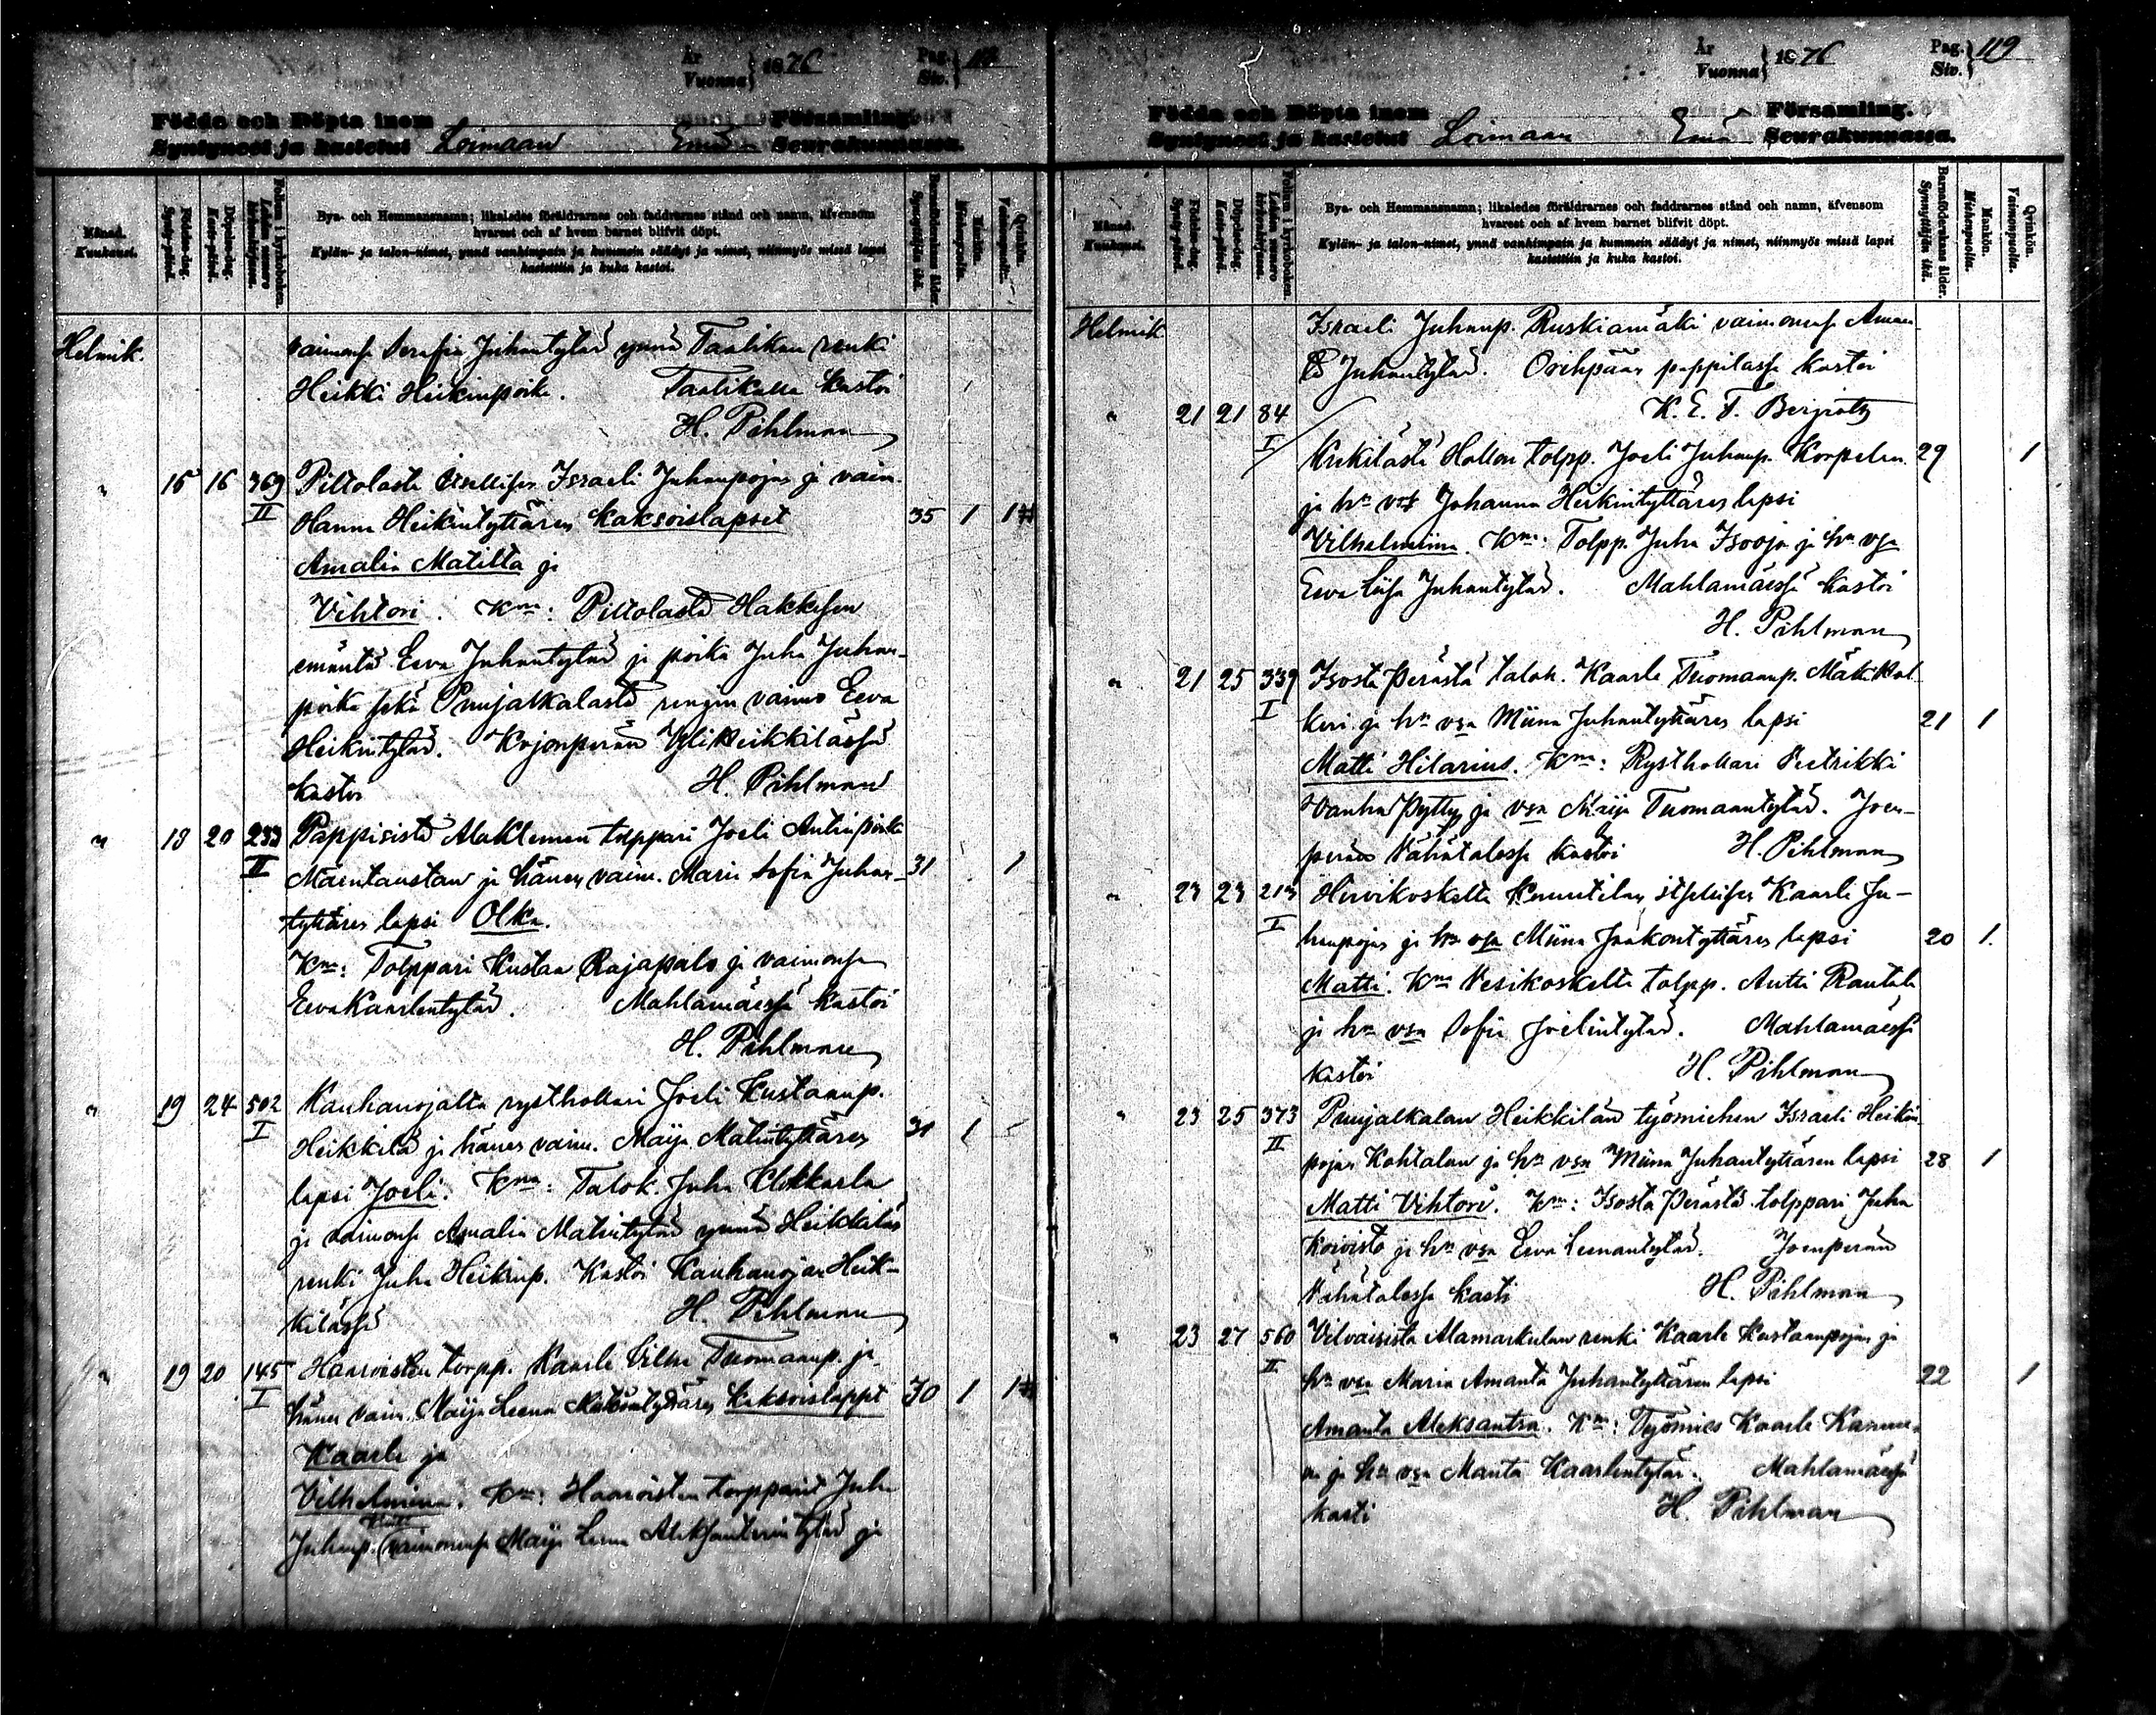 År
Vuonna } 1876
Pag.
Siv. } 118
Födda och Döpta inom Församling.
Syntyneet ja kastetut Loimaan Emä Seurakunnassa.
Månad.
Kuukausi.
Födelse-dag.
Synty-päivä.
Döpelse-dag.
Kaste-päivä.
Folium i kyrkoboken.
Lehden numero kirkonkirjassa.
Bya- och Hemmansnamn; likaledes föräldrarnes och faddrarnes stånd och namn, äfvensom
hvarest och af hvem barnet blifvit döpt.
Kylän- ja talon-nimet, ynnä vanhimpain ja kummein säädyt ja nimet, niinmyös missä lapsi
kastettiin ja kuka kastoi.
Barnaföderskans ålder.
Synnyttäjän ikä.
Mankön.
Miehenpuolia.
Qvinkön.
Vaimonpuolia.
Helmik. vaimonsa Serafia Juhantytär ynnä Taatikan renki
Heikki Heikinpoika. Taatikalla kastoi
H. Pihlman
" 15 16 369 Piltolasta Israeli Juhanpojan ja vaim.
II Hanna Heikintyttären kaksoislapset 35 1 1
Amalia Matilta ja
Vihtori. Km: Piltolasta Hakkisen
emäntä Eeva Juhantytär ja poika Juha Juhan-
poika sekä Puujalkalasta rengin vaimo Eeva
Heikintytär. Kojonperän Yliheikkilässä
kastoi H. Pihlman
" 18 20 233 Pappisista Alaklemen torppari Joeli Antinpoika
II Mäentaustan ja hänen vaim. Maria Sofia Juhan- 31 1
tyttären lapsi Olka.
Km: Torppari Kustaa Rajapalo ja vaimonsa
Eeva Kaarlentytär. Mahlamäessä kastoi
H. Pihlman
" 19 24 502 Kauhanojalta rysthollari Joeli Kustaanp.
I Heikkilä ja hänen vaim. Maija Matintyttären 31 1
lapsi Joeli. Km: Talok. Juha Klokkarla
ja vaimonsa Amalia Matintytär ynnä Heikkilän
renki Juha Heikinp. Kastoi Kauhanojan Heik-
kilässä H. Pihlman
" 19 20 145 Haaroisten torpp. Kaarle Vilhe Tuomaanp. ja
I hänen vaim. Maija Leena kaksoislapset 30 1 1
Kaarle ja
Vilhelmina. Km: Haaroisten torpparit Juha
Juhanp. vaimonensa Maija Leena Aleksanterintytär ja
År
Vuonna } 1876
Pag.
Siv. } 119
Födda och Döpta inom Församling.
Syntyneet ja kastetut Loimaan Emä Seurakunnassa.
Månad.
Kuukausi.
Födelse-dag.
Synty-päivä.
Döpelse-dag.
Kaste-päivä.
Folium i kyrkoboken.
Lehden numero kirkonkirjassa.
Bya- och Hemmansnamn; likaledes föräldrarnes och faddrarnes stånd och namn, äfvensom
hvarest och af hvem barnet blifvit döpt.
Kylän- ja talon-nimet, ynnä vanhimpain ja kummein säädyt ja nimet, niinmyös missä lapsi
kastettiin ja kuka kastoi.
Barnaföderskans ålder.
Synnyttäjän ikä.
Mankön.
Miehenpuolia.
Qvinkön.
Vaimonpuolia.
Helmik. Israeli Juhanp. Ruskiamäki vaimonensa Aman-
Juhantytär. Orihpään pappilassa kastoi
" 21 21 84 K. E. F.
I Krekilästä torpp. Joeli Juhanp. Korpelan 29 1
ja hn vsa Johanna Heikintyttären lapsi
Vilhelmiina. Km: Torpp. Juha Isooja ja hn vsa
Eeva Liisa Juhantytär. Mahlamäessä kastoi
H. Pihlman
" 21 25 339 Isosta Perästä talok. Kaarle Tuomaanp.
I ja hn vsa Miina Juhantyttären lapsi 21 1
Matti Hilarius. Km: Rysthollari Vanha Pyttys ja vsa Maija Tuomaantytär. Joen-
perän Vähätalossa kastoi H. Pihlman
" 23 23 213 Hirvikoskelta itsellisen Kaarle Ju-
I hanpojan ja hn vsa Miina Jaakontyttären lapsi 20 1
Matti. Km Vesikoskelta torpp. Antti Rautala
ja hn vsa Sofia Joelintytär. Mahlamäessä
kastoi H. Pihlman
" 23 25 373 Puujalkalan Heikkilän työmiehen Israeli Heikin-
II pojan Kohtalan ja hn vsa Miina Juhantyttären lapsi 28 1
Matti Vihtori. Km: Isosta Perästä torppari Juha
Koivisto ja hn vsa Eeva Leenantytär. Joenperän
Vähätalossa kasti H. Pihlman
" 23 27 560 Vilvaisista Alamarkulan renki Kaarle Kustaanpojan ja
II hn vsa Maria Amanta Juhantyttären lapsi 22 1
Amanta Aleksantra. Km: Työmies Kaarle
ja hn vsa Manta Kaarlentytär. Mahlamäessä
kasti H. Pihlman